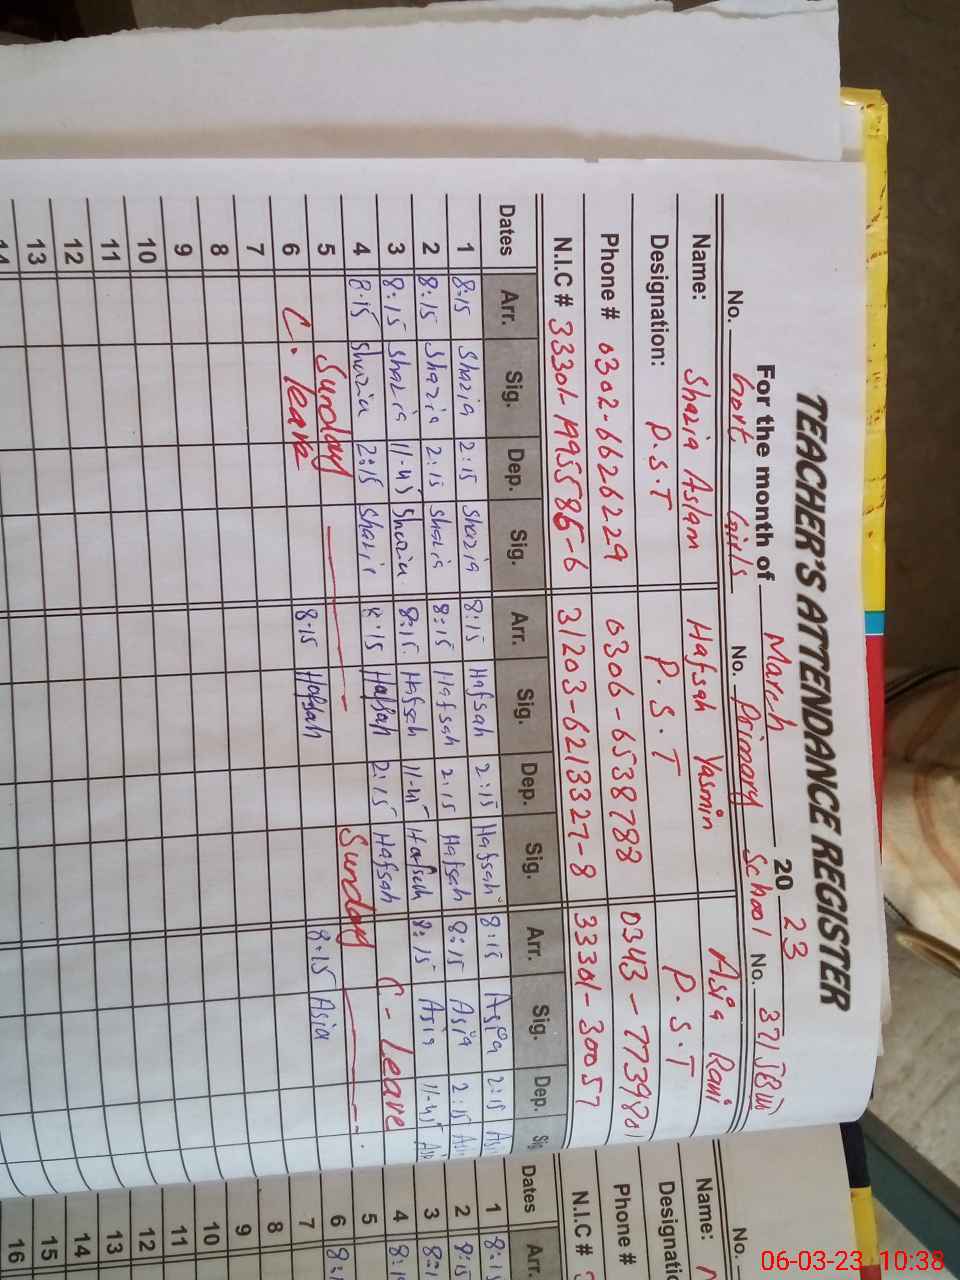 TEACHER'S ATTENDANCE REGISTER
For the month of March 2023
No. Govt Girls No. Primary School No. 371 JB
Name: Shazia Aslam Hafsah Yasmin Asia Rani
Designation: P.S.T P.S.T P.S.T
Phone # 0302-6626229 0306-6538788 0343-7739801
N.I.C # 31203-6213327-8 33301-30057
Dates Arr. Sig. Dep. Sig. Arr. Sig. Dep. Sig. Arr. Sig. Dep. Sig
1 8:15 Shazia 2:15 Shazia 8:15 Hafsah 2:15 Hafsah 8:15 Asia 2:15 Asi
2 8:15 Shazia 2:15 Shazia 8:15 Hafsah 2:15 Hafsah 8:15 Asia 2:15 Asi
3 8:15 Shazia 11-45 Shazia 8:15 Hafsah 11-45 Hafsah 8:15 Asia 11-45 Asi
4 8:15 Shazia 2:15 Shazia 8:15 Hafsah 2:15 Hafsah C-Leave
5 Sunday Sunday
6 C. leave 8:15 Hafsah 8:15 Asia
7
8
9
10
11
12
13
14
No.
Name:
Designati
Phone #
N.I.C #
Dates Arr.
1 8:15
2 8:15
3 8:1
4 8:1
5
6 8:1
7
8
9
10
11
12
13
14
15
16
06-03-23 10:38